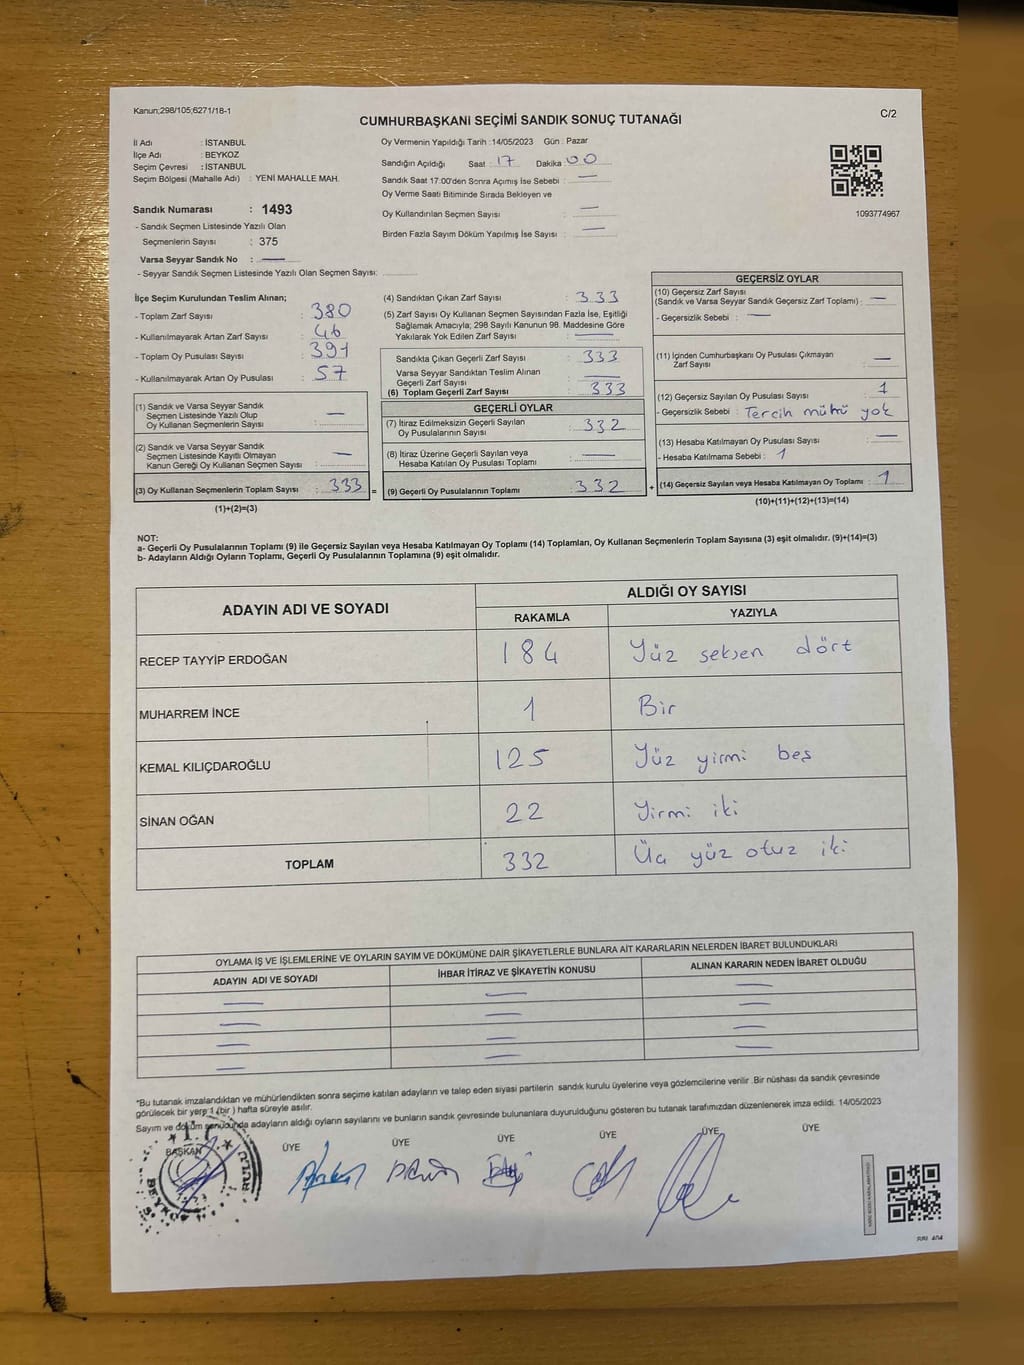 Kanun;298/105;6271/18-1
C/2
CUMHURBAŞKANI SEÇİMİ SANDIK SONUÇ TUTANAĞI
İl Adı : İSTANBUL
İlçe Adı : BEYKOZ
Seçim Çevresi : İSTANBUL
Seçim Bölgesi (Mahalle Adı) : YENİ MAHALLE MAH.
Sandık Numarası : 1493
- Sandık Seçmen Listesinde Yazılı Olan
Seçmenlerin Sayısı : 375
Varsa Seyyar Sandık No : —
- Seyyar Sandık Seçmen Listesinde Yazılı Olan Seçmen Sayısı:
Oy Vermenin Yapıldığı Tarih :14/05/2023 Gün : Pazar
Sandığın Açıldığı Saat : 17 Dakika : 00
Sandık Saat 17.00'den Sonra Açımış İse Sebebi : —
Oy Verme Saati Bitiminde Sırada Bekleyen ve
Oy Kullandırılan Seçmen Sayısı : —
Birden Fazla Sayım Döküm Yapılmış İse Sayısı : —
1093774967
İlçe Seçim Kurulundan Teslim Alınan;
- Toplam Zarf Sayısı : 380
- Kullanılmayarak Artan Zarf Sayısı : 46
- Toplam Oy Pusulası Sayısı : 391
- Kullanılmayarak Artan Oy Pusulası : 57
(1) Sandık ve Varsa Seyyar Sandık
Seçmen Listesinde Yazılı Olup
Oy Kullanan Seçmenlerin Sayısı : —
(2) Sandık ve Varsa Seyyar Sandık
Seçmen Listesinde Kayıtlı Olmayan
Kanun Gereği Oy Kullanan Seçmen Sayısı : —
(3) Oy Kullanan Seçmenlerin Toplam Sayısı : 333 =
(1)+(2)=(3)
(4) Sandıktan Çıkan Zarf Sayısı : 333
(5) Zarf Sayısı Oy Kullanan Seçmen Sayısından Fazla İse, Eşitliği
Sağlamak Amacıyla; 298 Sayılı Kanunun 98. Maddesine Göre
Yakılarak Yok Edilen Zarf Sayısı : —
Sandıkta Çıkan Geçerli Zarf Sayısı : 333
Varsa Seyyar Sandıktan Teslim Alınan
Geçerli Zarf Sayısı : —
(6) Toplam Geçerli Zarf Sayısı : 333
GEÇERLİ OYLAR
(7) İtiraz Edilmeksizin Geçerli Sayılan
Oy Pusulalarının Sayısı : 332
(8) İtiraz Üzerine Geçerli Sayılan veya
Hesaba Katılan Oy Pusulası Toplamı : —
(9) Geçerli Oy Pusulalarının Toplamı : 332 +
GEÇERSİZ OYLAR
(10) Geçersiz Zarf Sayısı
(Sandık ve Varsa Seyyar Sandık Geçersiz Zarf Toplamı) : —
- Geçersizlik Sebebi : —
(11) İçinden Cumhurbaşkanı Oy Pusulası Çıkmayan
Zarf Sayısı : —
(12) Geçersiz Sayılan Oy Pusulası Sayısı : 1
- Geçersizlik Sebebi : Tercih mührü yok
(13) Hesaba Katılmayan Oy Pusulası Sayısı : —
- Hesaba Katılmama Sebebi : 1
(14) Geçersiz Sayılan veya Hesaba Katılmayan Oy Toplamı : 1
(10)+(11)+(12)+(13)=(14)
NOT:
a- Geçerli Oy Pusulalarının Toplamı (9) ile Geçersiz Sayılan veya Hesaba Katılmayan Oy Toplamı (14) Toplamları, Oy Kullanan Seçmenlerin Toplam Sayısına (3) eşit olmalıdır. (9)+(14)=(3)
b- Adayların Aldığı Oyların Toplamı, Geçerli Oy Pusulalarının Toplamına (9) eşit olmalıdır.
ADAYIN ADI VE SOYADI
ALDIĞI OY SAYISI
RAKAMLA YAZIYLA
RECEP TAYYİP ERDOĞAN 184 Yüz seksen dört
MUHARREM İNCE 1 Bir
KEMAL KILIÇDAROĞLU 125 Yüz yirmi beş
SİNAN OĞAN 22 Yirmi iki
TOPLAM 332 Üç yüz otuz iki
OYLAMA İŞ VE İŞLEMLERİNE VE OYLARIN SAYIM VE DÖKÜMÜNE DAİR ŞİKAYETLERLE BUNLARA AİT KARARLARIN NELERDEN İBARET BULUNDUKLARI
ADAYIN ADI VE SOYADI İHBAR İTİRAZ VE ŞİKAYETİN KONUSU ALINAN KARARIN NEDEN İBARET OLDUĞU
*Bu tutanak imzalandıktan ve mühürlendikten sonra seçime katılan adayların ve talep eden siyasi partilerin sandık kurulu üyelerine veya gözlemcilerine verilir .Bir nüshası da sandık çevresinde
görülecek bir yere 1 (bir ) hafta süreyle asılır.
Sayım ve döküm sonucunda adayların aldığı oyların sayılarını ve bunların sandık çevresinde bulunanlara duyurulduğunu gösteren bu tutanak tarafımızdan düzenlenerek imza edildi. 14/05/2023
BAŞKAN ÜYE ÜYE ÜYE ÜYE ÜYE ÜYE
T.C.
BEYKOZ